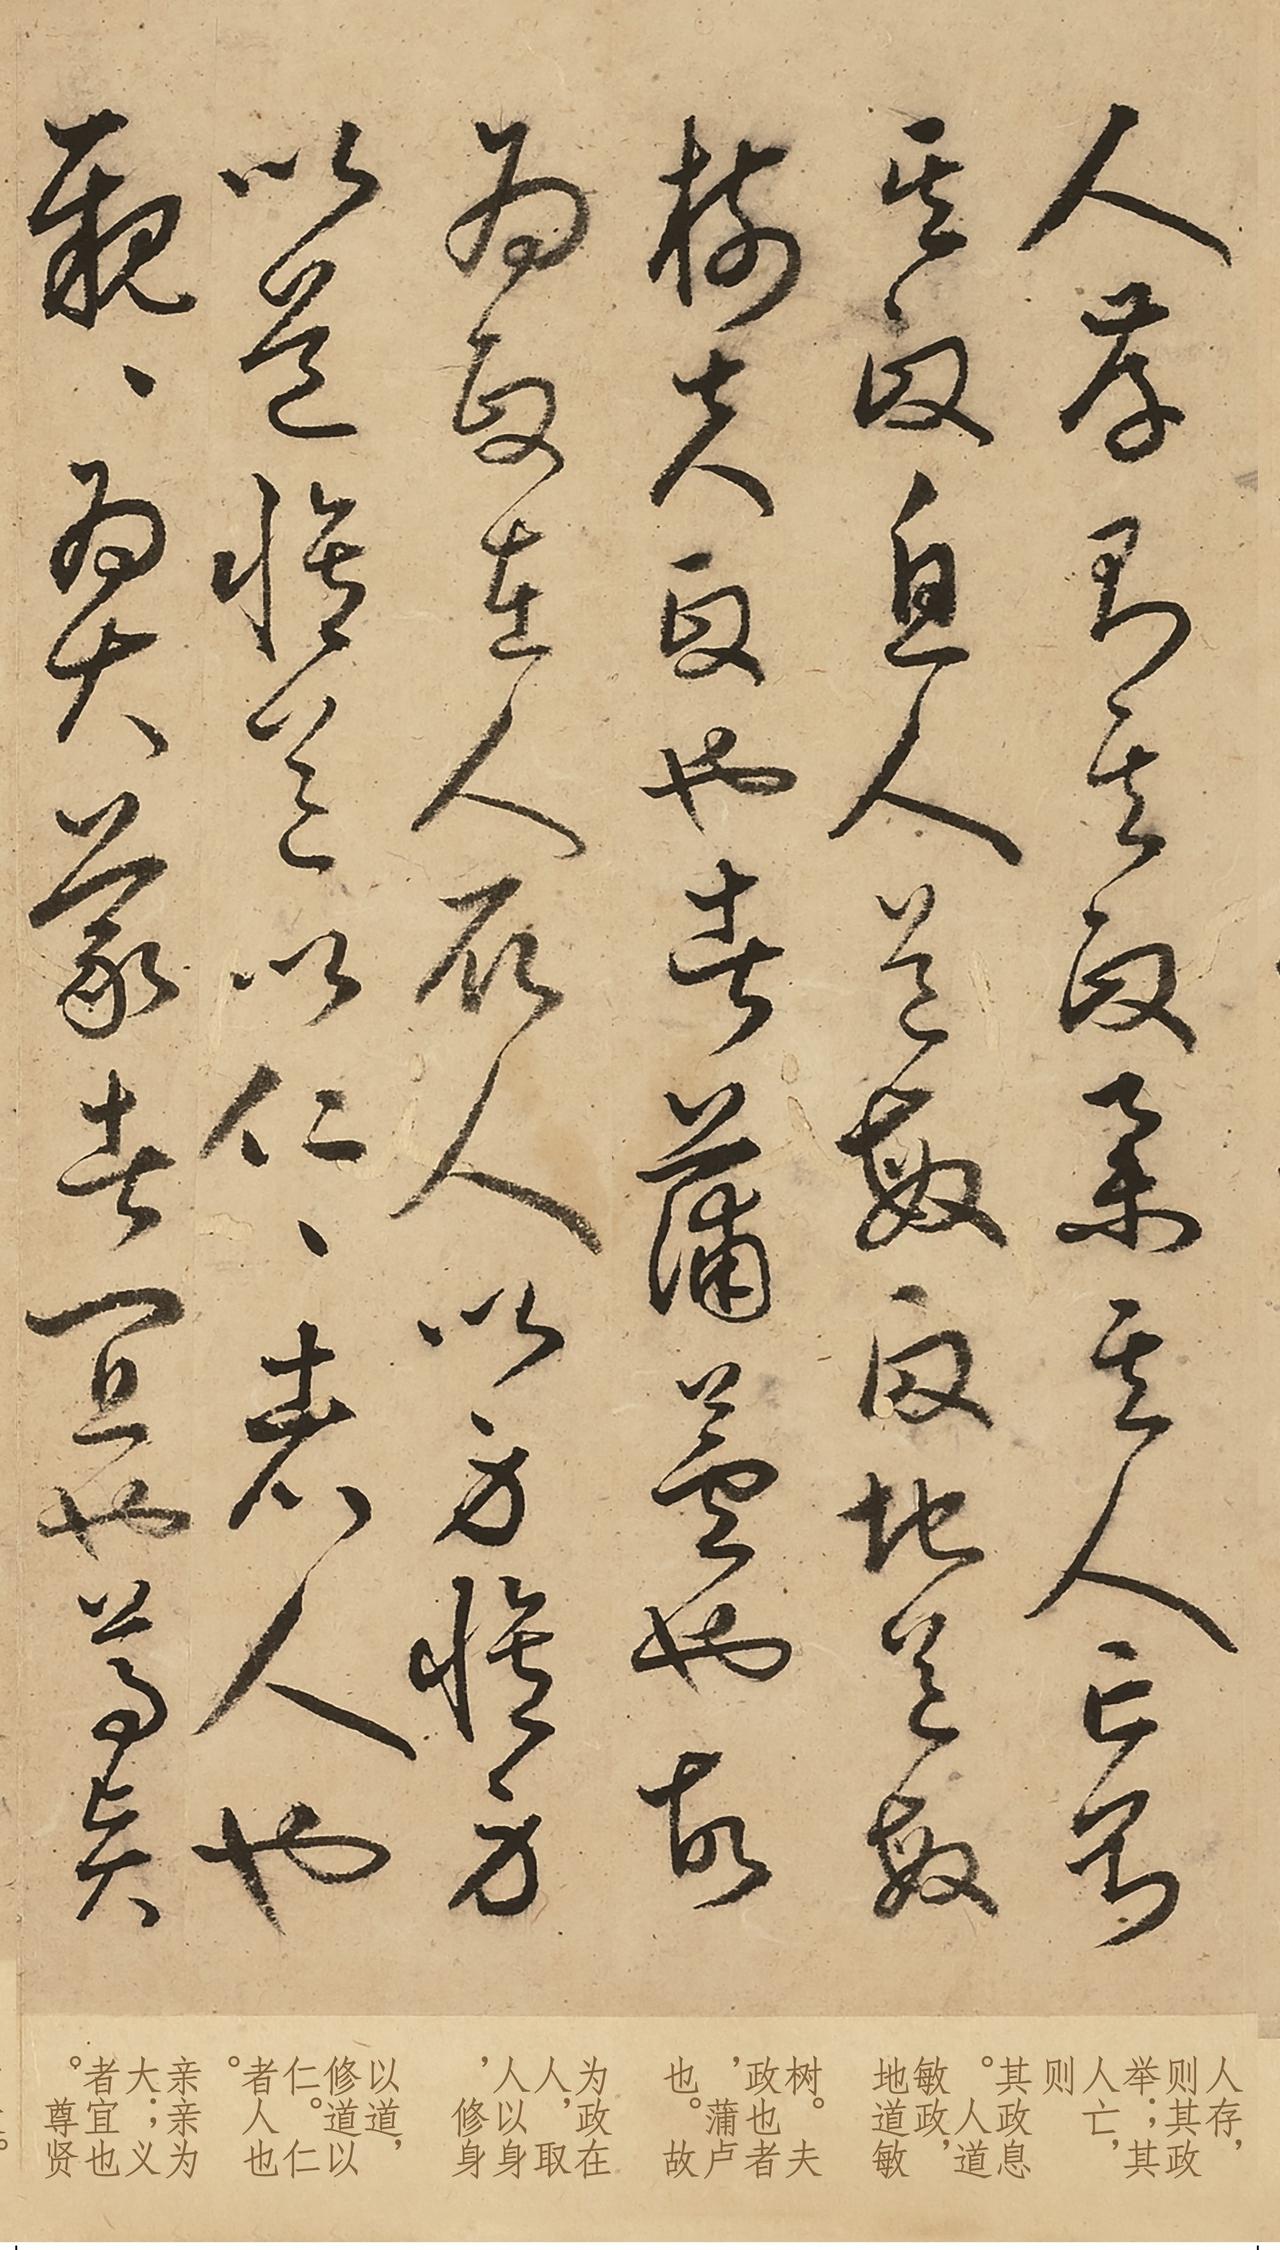 人存則其政舉其人亡則
其政息人道敏政地道敏
樹夫政也者蒲蘆也故
為政在人取人以身修身
以道修道以仁、者人也
親、為大義者宜也尊賢
人存，
则其政
举；其
人亡，
则
其政息
。人道
敏政，
地道敏
树。夫
政也者
，蒲卢
也。故
为政在
人，取
人以身
，修身
以道，
修道以
仁。仁
者人也
。
亲亲为
大；义
者宜也
。尊贤